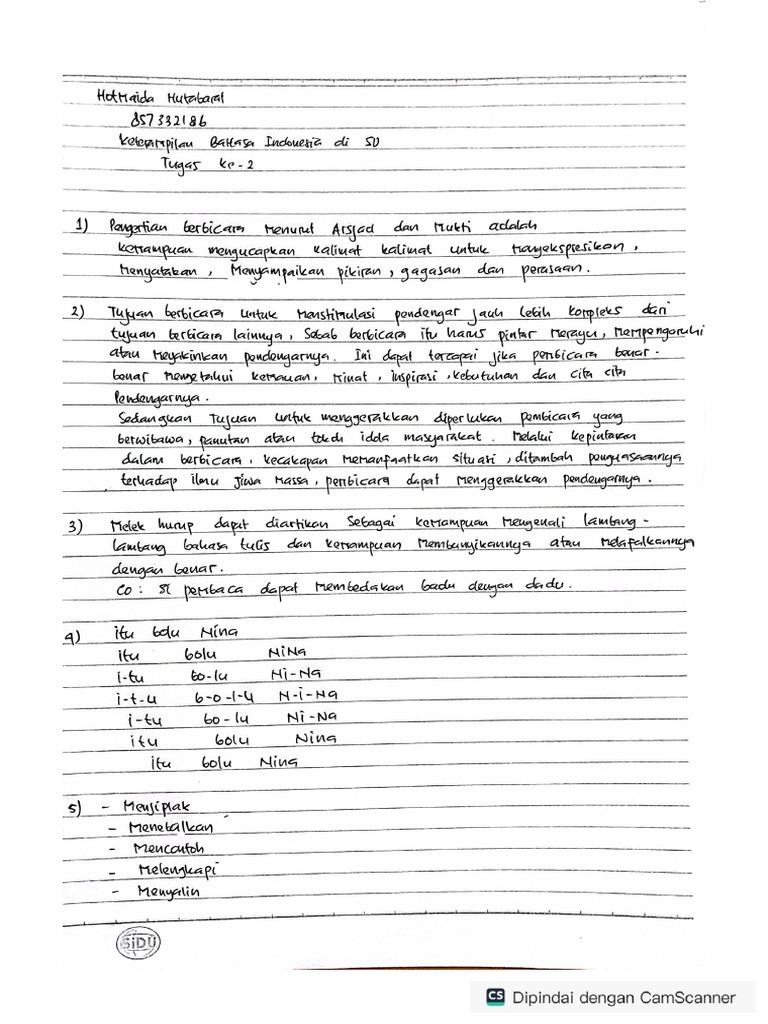 Hotmaida Hutabarat
857332186
Keterampilan Bahasa Indonesia di SD
Tugas ke-2
1) Pengertian berbicara menurut Arsjad dan Mukti adalah
kemampuan mengucapkan kalimat kalimat untuk mengekspresikan,
menyatakan, menyampaikan pikiran, gagasan dan perasaan.
2) Tujuan berbicara untuk menstimulasi pendengar jauh lebih kompleks dari
tujuan berbicara lainnya, sebab berbicara itu harus pintar merayu, mempengaruhi
atau meyakinkan pendengarnya. Ini dapat tercapai jika pembicara benar-
benar mengetahui kemauan, minat, inspirasi, kebutuhan dan cita cita
pendengarnya.
Sedangkan Tujuan untuk menggerakkan diperlukan pembicara yang
berwibawa, panutan atau tokoh idola masyarakat. Melalui kepintaran
dalam berbicara, kecakapan memanfaatkan situasi, ditambah penguasaannya
terhadap ilmu jiwa massa, pembicara dapat menggerakkan pendengarnya.
3) Melek hurup dapat diartikan sebagai kemampuan mengenali lambang-
lambang bahasa tulis dan kemampuan membunyikannya atau melafalkannya
dengan benar.
Co: si pembaca dapat membedakan badu dengan dadu.
4) itu bolu Nina
itu bolu NiNa
i-tu bo-lu Ni-Na
i-t-u b-o-l-u N-i-Na
i-tu bo-lu Ni-Na
itu bolu Nina
itu bolu Nina
5) - Menjiplak
- Menebalkan
- Mencontoh
- Melengkapi
- Menyalin
SiDU
CS Dipindai dengan CamScanner